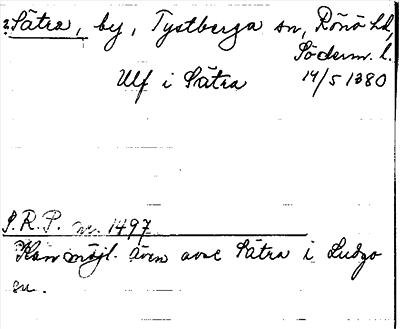 ? Sätra, by, Tystberga sn, Rönö hd,
Söderm. l.
Ulf i Sätra 14/5 1380
S.R.P. nr. 1497
Kan möjl. även avse Sätra i Ludgo
sn.